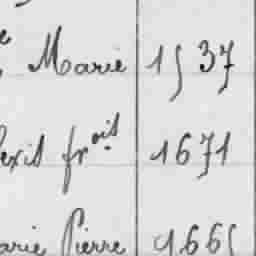 Marie 1537
exis frois 1671
arie Pierre 1665